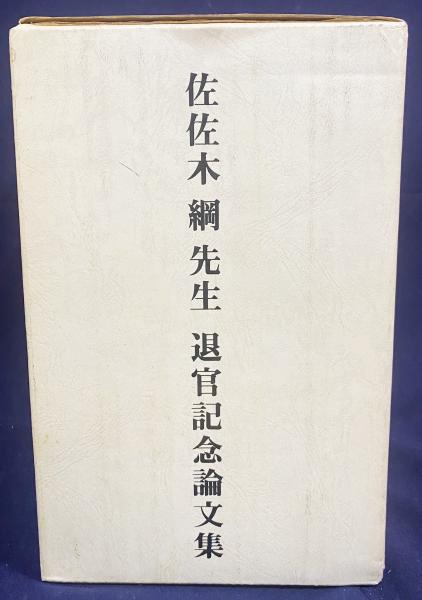 佐佐木 綱 先生 退官記念論文集